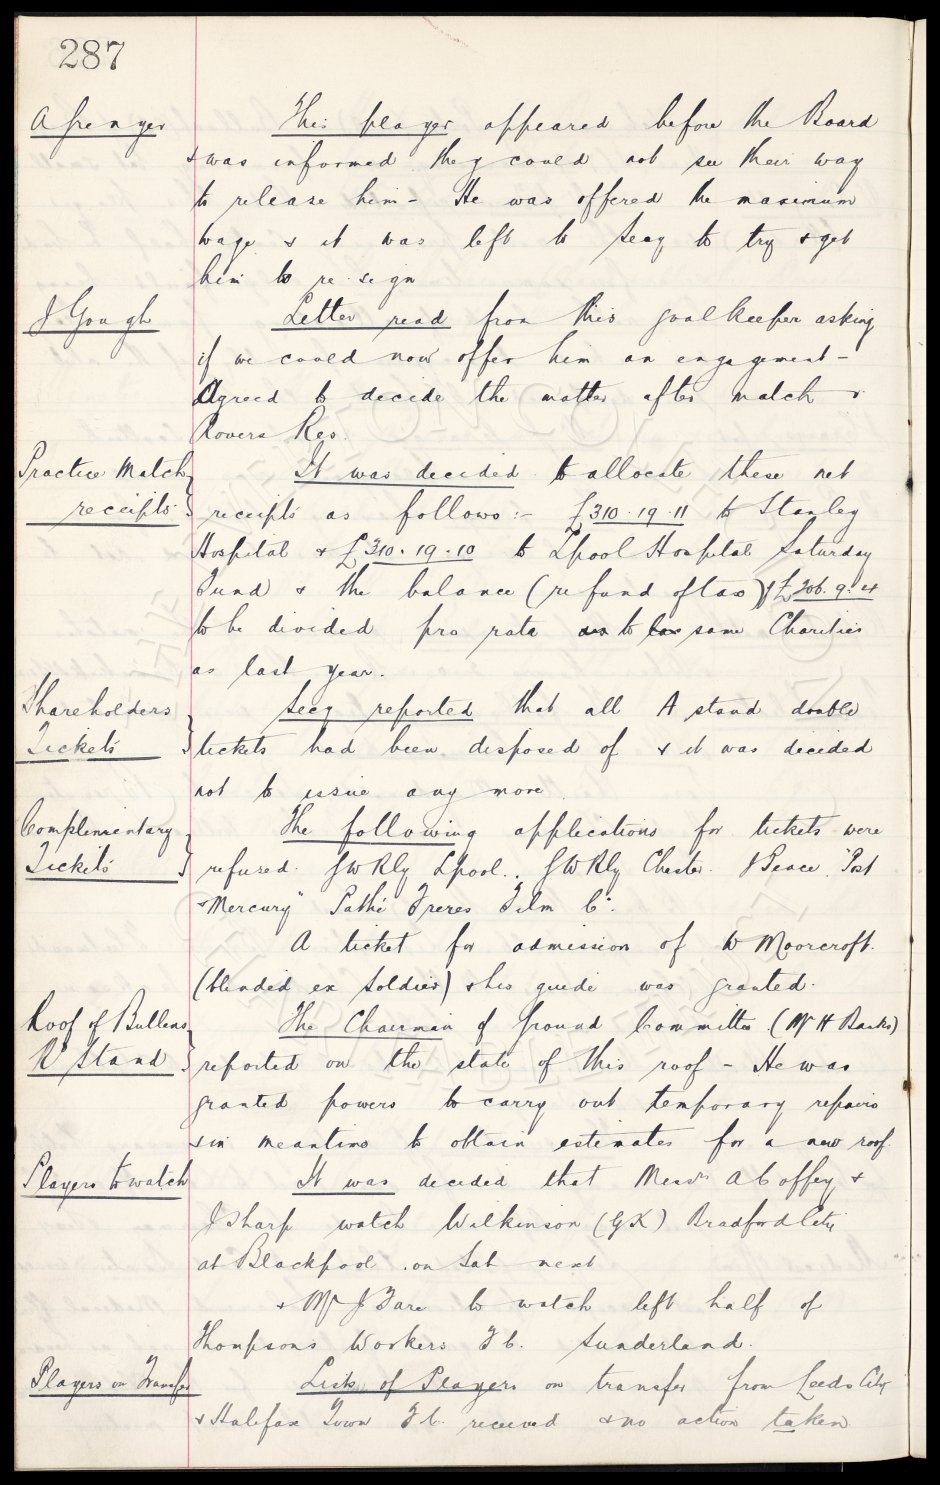 287
A Grenyer
This player appeared before the Board
& was informed they could not see their way
to release him - He was offered the maximum
wage & it was left to Secy to try & get
him to re-sign
J Gough
Letter read from this goalkeeper asking
if we could now offer him an engagement -
Agreed to decide the matter after match v
Rovers Res.
Practice Match
receipts
It was decided to allocate these net
receipts as follows :- £310.19.11 to Stanley
Hospital & £310.19.10 to Lpool Hospital Saturday
Fund & the balance (refund of tax) £206.9.4
to be divided pro rata to same Charities
as last year.
Shareholders
Tickets
Secy reported that all A stand double
tickets had been disposed of & it was decided
not to issue any more
Complimentary
Tickets
The following applications for tickets were
refused. GW Rly Lpool., GW Rly Chester. J Peace "Post
& Mercury" Pathé Freres Film Co.
A ticket for admission of W Moorcroft.
(blinded ex Soldier) & his guide was granted.
Roof of Bullens
Rd Stand
The Chairman of Ground Committee (Mr H Banks)
reported on the state of this roof - He was
granted powers to carry out temporary repairs
& in meantime to obtain estimates for a new roof.
Players to watch
It was decided that Messrs A Coffey &
J Sharp watch Wilkinson (GK) Bradford City
at Blackpool on Sat next
& Mr J Fare to watch left half of
Thompsons Workers F C. Sunderland.
Players on Transfer
List of Players on transfer from Leeds City
& Halifax Town F C. received & no action taken